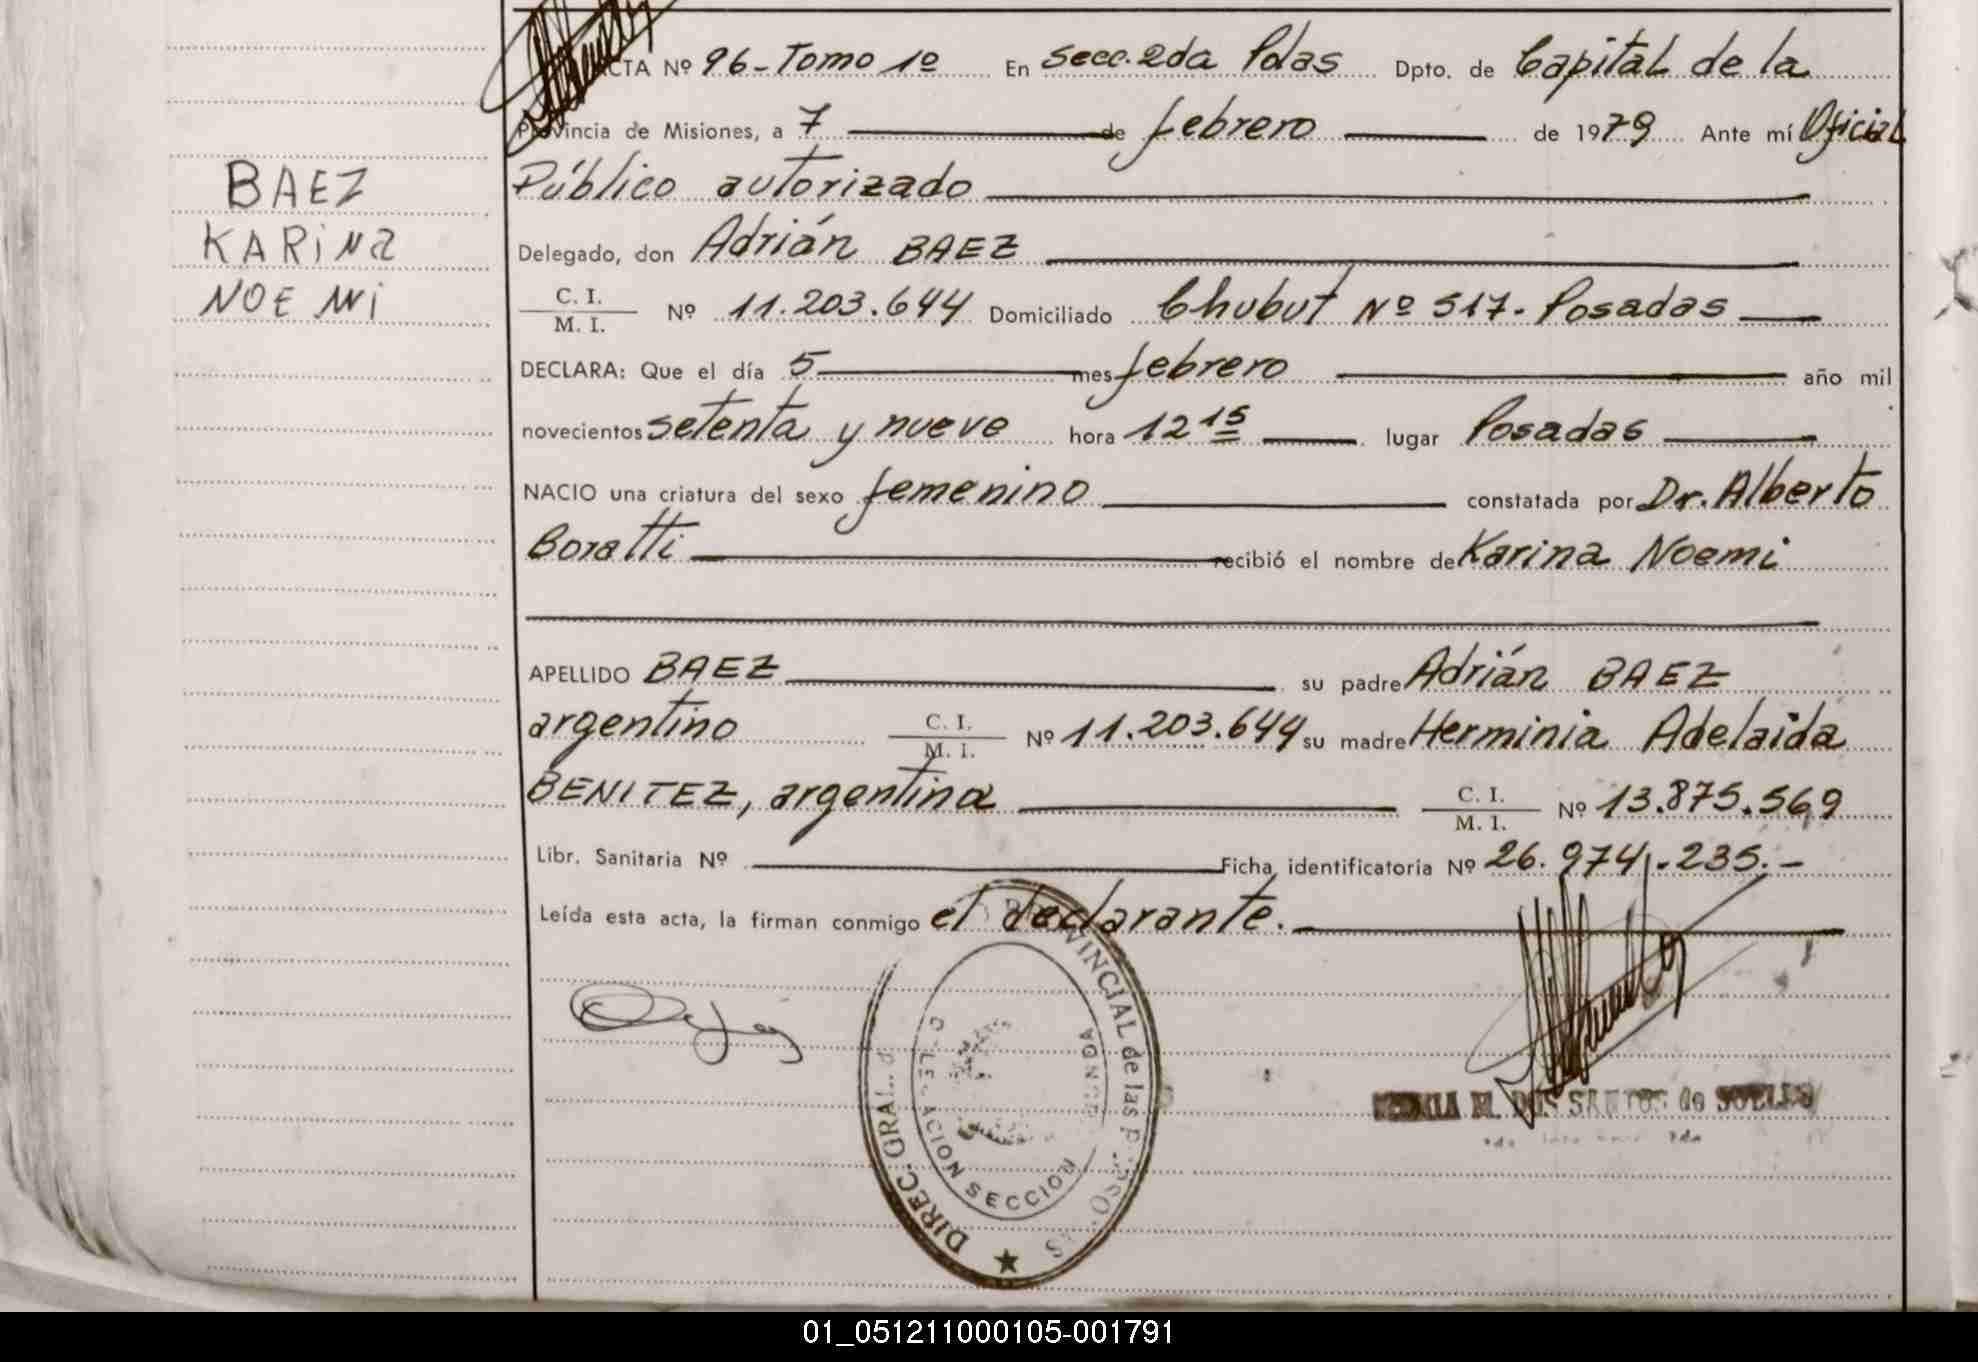 BAEZ
KARINA
NOEMI
ACTA Nº 96-Tomo 1º En Secc. 2da Pdas Dpto. de Capital de la
Provincia de Misiones, a 7 de febrero de 1979 Ante mí Oficial
Público autorizado
Delegado, don Adrián BAEZ
C. I.
M. I. Nº 11.203.644 Domiciliado Chubut Nº 517. Posadas
DECLARA: Que el día 5 mes febrero año mil
novecientos setenta y nueve hora 12 15 lugar Posadas
NACIO una criatura del sexo femenino constatada por Dr. Alberto
Boratti recibió el nombre de Karina Noemi
APELLIDO BAEZ su padre Adrián BAEZ
argentino C. I. M. I. Nº 11.203.644 su madre Herminia Adelaida
BENITEZ, argentina C. I. M. I. Nº 13.875.569
Libr. Sanitaria Nº Ficha identificatoria Nº 26.974.235.-
Leída esta acta, la firman conmigo el declarante.
DIREC. GRAL. PROVINCIAL de las PERSONAS
DELEGACION SECCION SEGUNDA
M. DOS SANTOS de
01_051211000105-001791